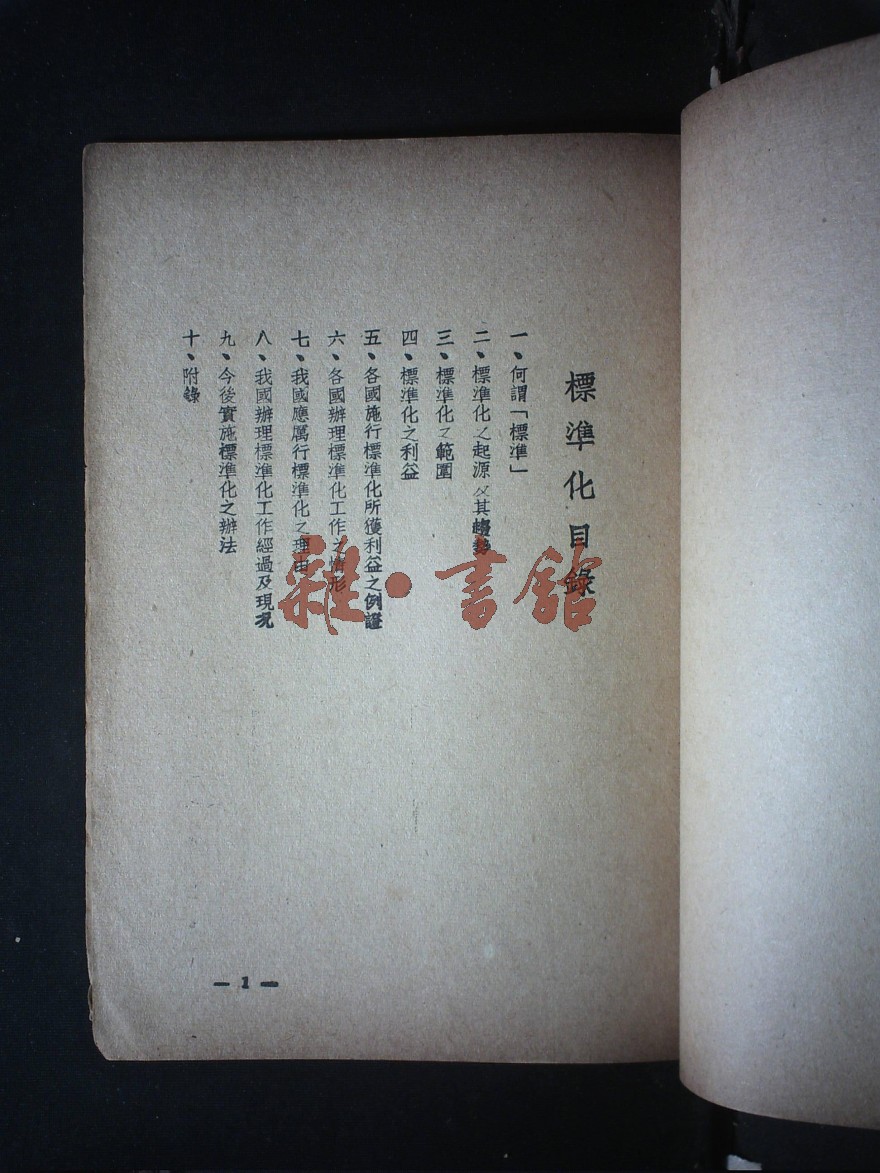 標準化目錄
一、何謂「標準」
二、標準化之起源及其趨勢
三、標準化之範圍
四、標準化之利益
五、各國施行標準化所獲利益之例證
六、各國辦理標準化工作之情形
七、我國應厲行標準化之理由
八、我國辦理標準化工作經過及現況
九、今後實施標準化之辦法
十、附錄
雜·書館
— 1 —